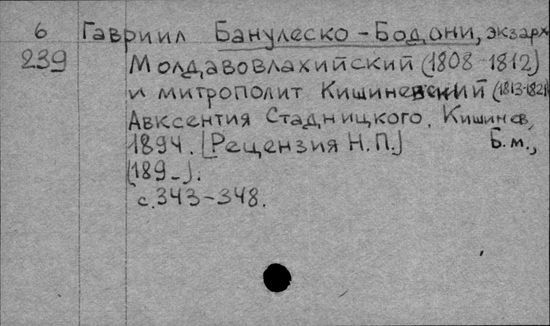 6 Гавриил Банулеско-Бодони, экзарх
239 Молдавовлахийский (1808-1812)
и митрополит Кишиневский (1813-1821)
Авксентия Стадницкого. Кишинев,
1894. [Рецензия Н.П.] Б.м.,
(189-).
с.343-348.